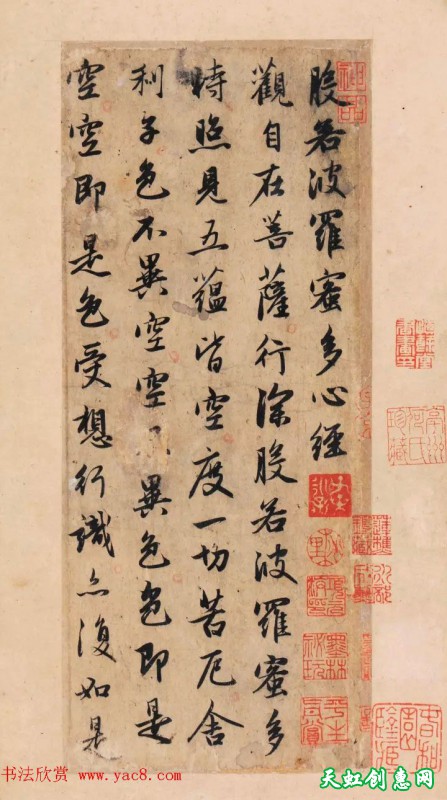 般若波羅蜜多心經
觀自在菩薩行深般若波羅蜜多
時照見五蘊皆空度一切苦厄舍
利子色不異空空不異色色即是
空空即是色受想行識亦復如是
墨林祕玩
书法欣赏 www.yac8.com
天虹创意网